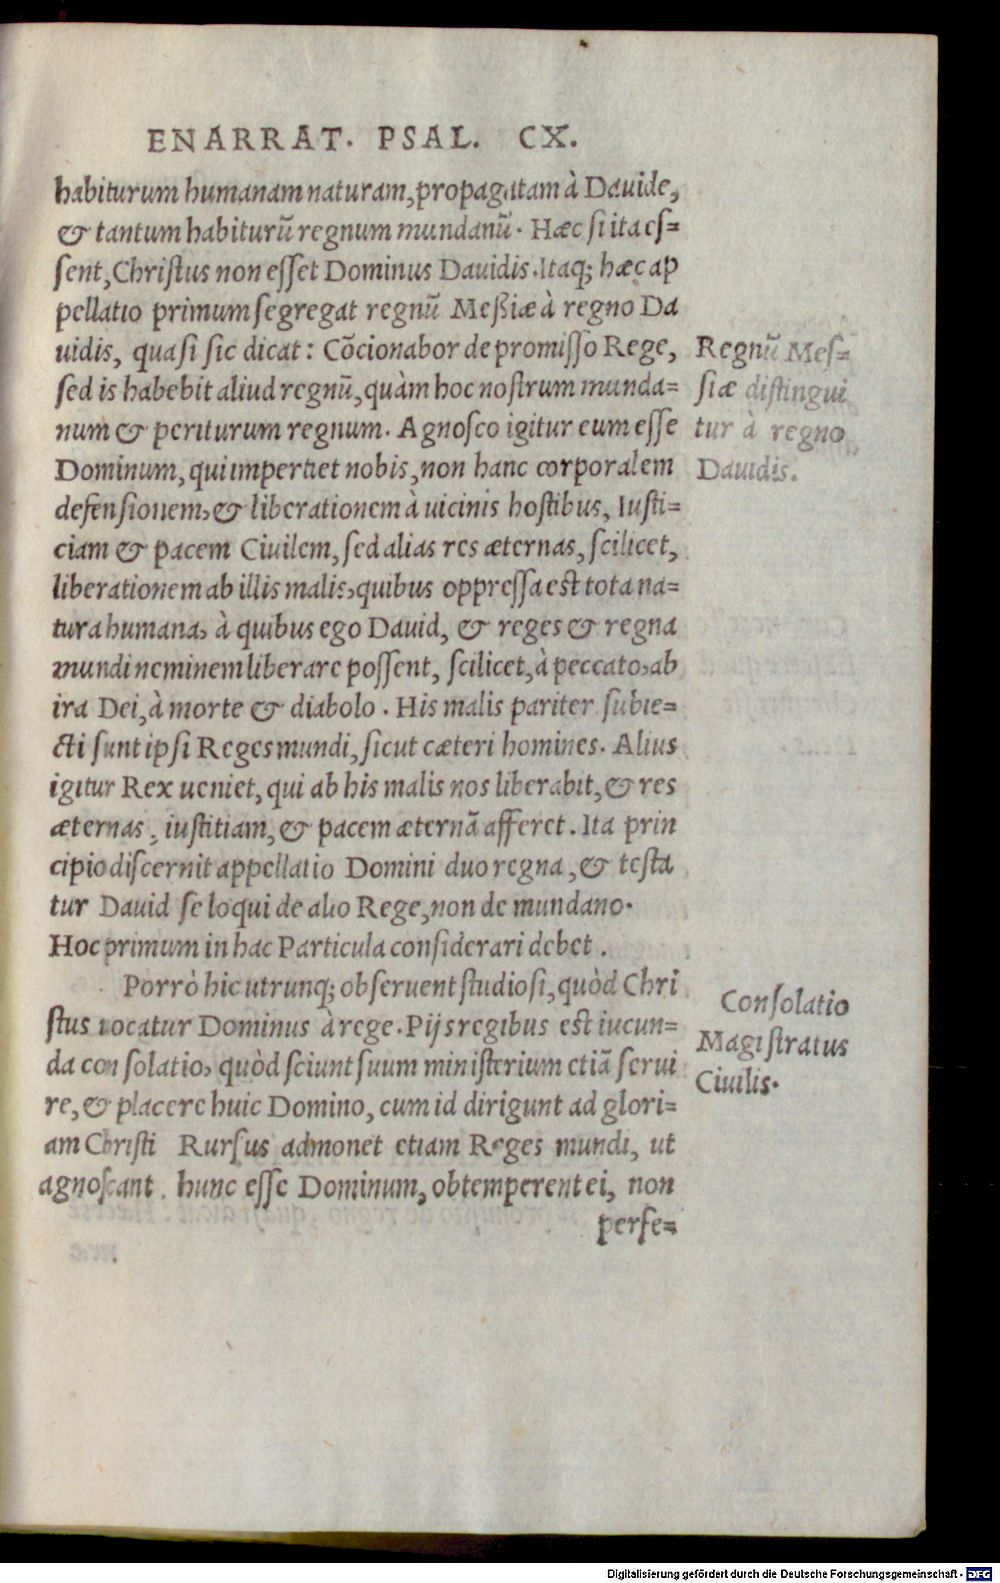 ENARRAT. PSAL. CX.
habiturum humanam naturam, propagatam à Dauide,
& tantum habiturũ regnum mundanũ. Hæc si ita es=
sent, Christus non esset Dominus Dauidis. Itaq; hæc ap
pellatio primum segregat regnũ Meßiæ à regno Da
uidis, quasi sic dicat: Cõcionabor de promisso Rege,
sed is habebit aliud regnũ, quàm hoc nostrum munda=
num & periturum regnum. Agnosco igitur eum esse
Dominum, qui impertiet nobis, non hanc corporalem
defensionem, & liberationem à uicinis hostibus, Iusti=
ciam & pacem Ciuilem, sed alias res æternas, scilicet,
liberationem ab illis malis, quibus oppressa est tota na=
tura humana, à quibus ego Dauid, & reges & regna
mundi neminem liberare possent, scilicet, à peccato, ab
ira Dei, à morte & diabolo. His malis pariter subie=
cti sunt ipsi Reges mundi, sicut cæteri homines. Alius
igitur Rex ueniet, qui ab his malis nos liberabit, & res
æternas, iustitiam, & pacem æternã afferet. Ita prin
cipio discernit appellatio Domini duo regna, & testa
tur Dauid se loqui de alio Rege, non de mundano.
Hoc primum in hac Particula considerari debet.
Porrò hic utrunq; obseruent studiosi, quòd Chri
stus uocatur Dominus à rege. Pijs regibus est iucun=
da consolatio, quòd sciunt suum ministerium etiã serui
re, & placere huic Domino, cum id dirigunt ad glori=
am Christi Rursus admonet etiam Reges mundi, ut
agnoscant hunc esse Dominum, obtemperent ei, non
perse=
Regnũ Mes=
siæ distingui
tur à regno
Dauidis.
Consolatio
Magistratus
Ciuilis.
Digitalisierung gefördert durch die Deutsche Forschungsgemeinschaft - DFG